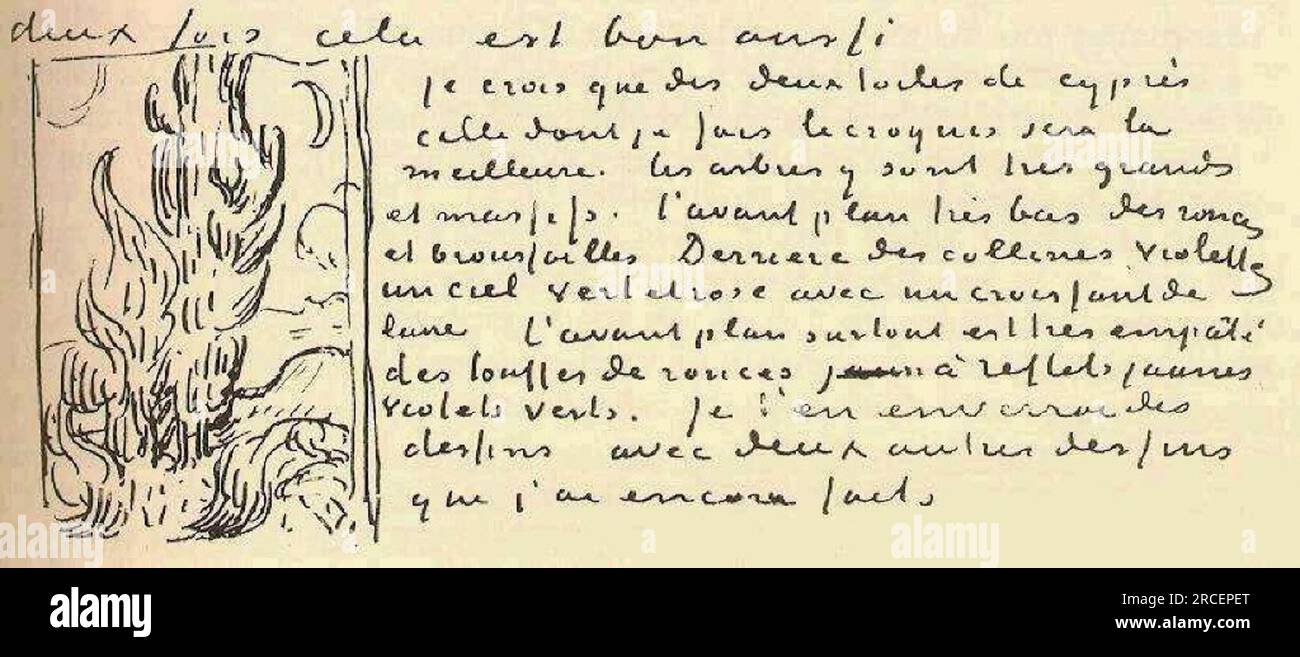 deux fois cela est bon aussi
je crois que des deux toiles de cyprès
celle dont je fais le croquis sera la
meilleure. les arbres y sont très grands
et massifs. l'avant plan très bas des ronces
et broussailles Derrière des collines violettes
un ciel vert et rose avec un croissant de
lune L'avant plan surtout est très empâté
des touffes de ronces à reflets jaunes
violets verts. Je t'en enverrai des
dessins avec deux autres dessins
que j'ai encore faits
alamy
Image ID: 2RCEPET
www.alamy.com